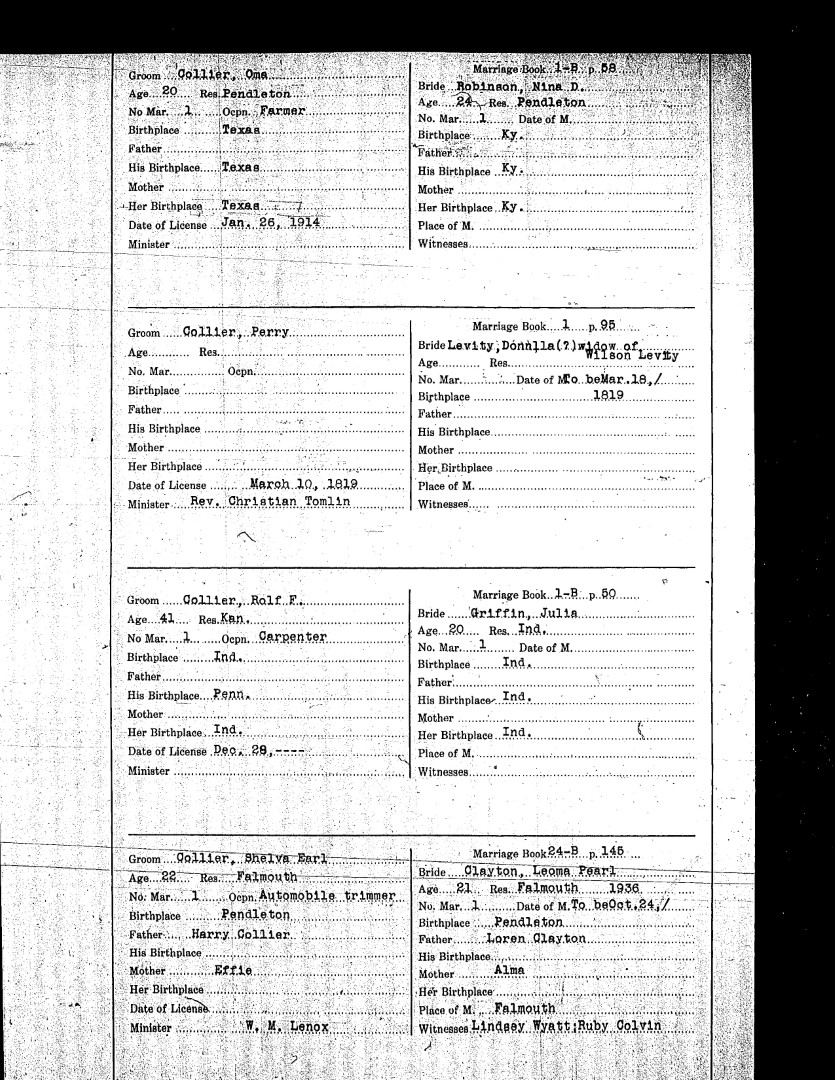 Groom Collier, Oma
Age 20 Res. Pendleton
No Mar. 1 Ocpn. Farmer
Birthplace Texas
Father
His Birthplace Texas
Mother
Her Birthplace Texas
Date of License Jan. 26, 1914
Minister
Marriage Book 1-B p. 58
Bride Robinson, Nina D.
Age 24 Res. Pendleton
No. Mar. 1 Date of M.
Birthplace Ky.
Father
His Birthplace Ky.
Mother
Her Birthplace Ky.
Place of M.
Witnesses
Groom Collier, Perry
Age Res.
No. Mar. Ocpn.
Birthplace
Father
His Birthplace
Mother
Her Birthplace
Date of License March 10, 1819
Minister Rev. Christian Tomlin
Marriage Book 1 p. 95
Bride Levity, Donnlla(?) widow of
Wilson Levity
Age Res.
No. Mar. Date of M. To be Mar. 18,/
Birthplace 1819
Father
His Birthplace
Mother
Her Birthplace
Place of M.
Witnesses
Groom Collier, Rolf F.
Age 41 Res. Kan.
No Mar. 1 Ocpn. Carpenter
Birthplace Ind.
Father
His Birthplace Penn.
Mother
Her Birthplace Ind.
Date of License Dec. 28,----
Minister
Marriage Book 1-B p. 50
Bride Griffin, Julia
Age 20 Res. Ind.
No. Mar. 1 Date of M.
Birthplace Ind.
Father
His Birthplace Ind.
Mother
Her Birthplace Ind.
Place of M.
Witnesses
Groom Collier, Shelva Earl
Age 22 Res. Falmouth
No. Mar. 1 Ocpn. Automobile trimmer
Birthplace Pendleton
Father Harry Collier
His Birthplace
Mother Effie
Her Birthplace
Date of License
Minister W. M. Lenox
Marriage Book 24-B p. 145
Bride Clayton, Leoma Pearl
Age 21 Res. Falmouth 1936
No. Mar. 1 Date of M. To be Oct. 24,/
Birthplace Pendleton
Father Loren Clayton
His Birthplace
Mother Alma
Her Birthplace
Place of M. Falmouth
Witnesses Lindsey Wyatt;Ruby Colvin